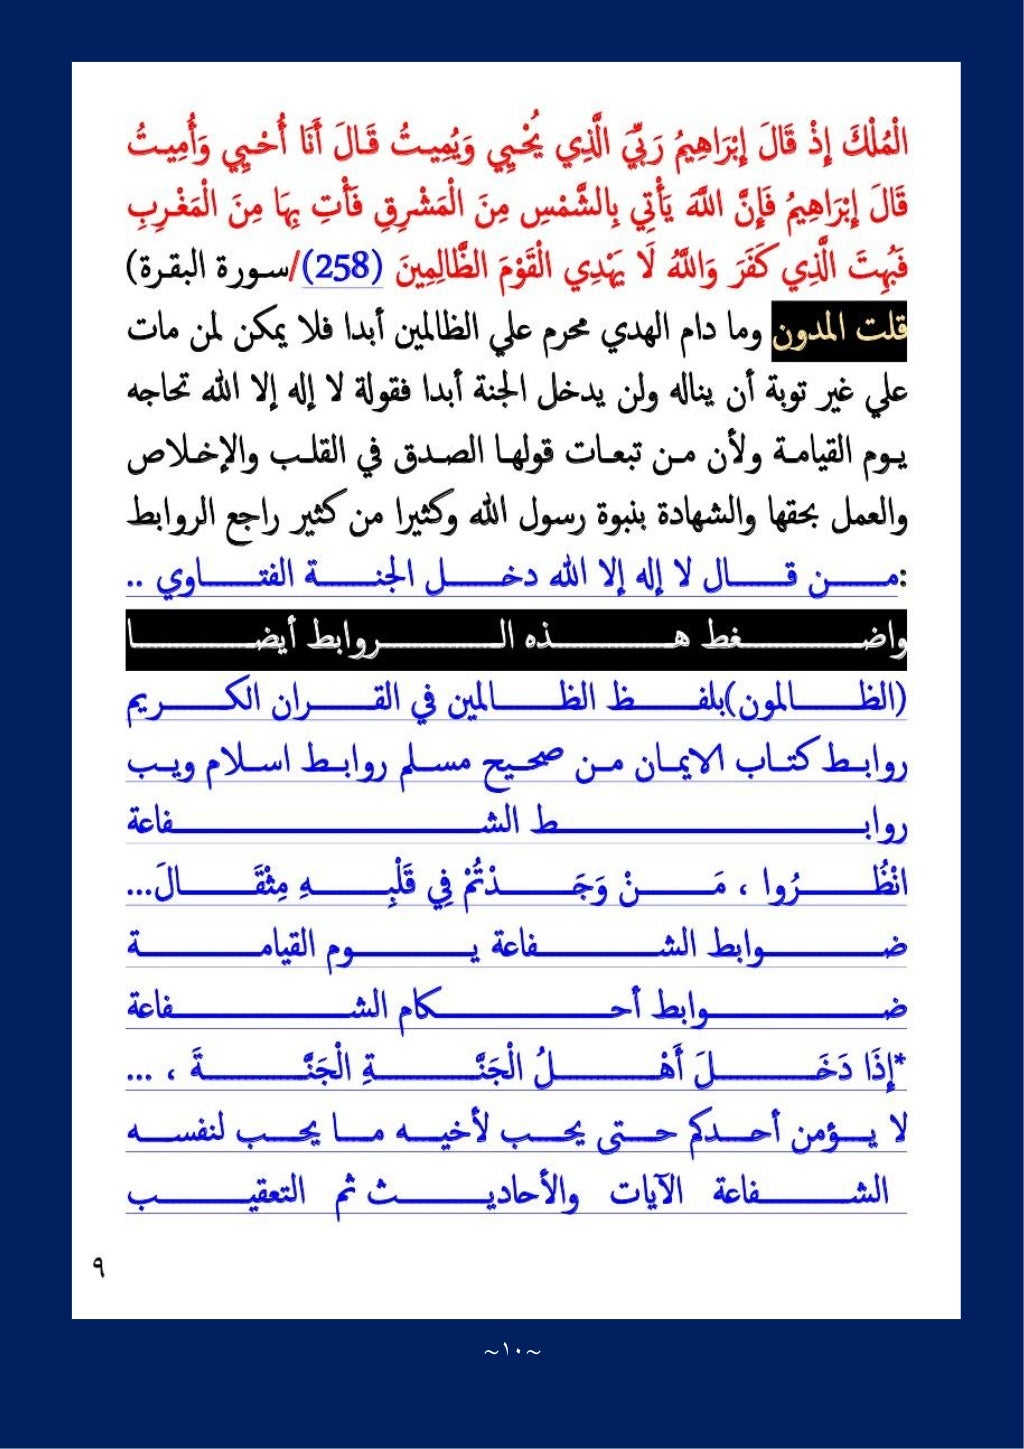 الْمُلْكَ إِذْ قَالَ إِبْرَاهِيمُ رَبِّيَ الَّذِي يُحْيِي وَيُمِيتُ قَالَ أَنَا أُحْيِي وَأُمِيتُ
قَالَ إِبْرَاهِيمُ فَإِنَّ اللَّهَ يَأْتِي بِالشَّمْسِ مِنَ الْمَشْرِقِ فَأْتِ بِهَا مِنَ الْمَغْرِبِ
فَبُهِتَ الَّذِي كَفَرَ وَاللَّهُ لَا يَهْدِي الْقَوْمَ الظَّالِمِينَ (258)/سورة البقرة)
قلت المدون وما دام الهدي محرم علي الظالمين أبدا فلا يمكن لمن مات
علي غير توبة أن يناله ولن يدخل الجنة أبدا فقولة لا إله إلا الله تحاجه
يوم القيامة ولأن من تبعات قولها الصدق في القلب والإخلاص
والعمل بحقها والشهادة بنبوة رسول الله وكثيرا من كثير راجع الروابط
:من قال لا إله إلا الله دخل الجنة الفتاوي ..
واضغط هذه الروابط أيضا
(الظالمون)بلفظ الظالمين في القران الكريم
روابط كتاب الايمان من صحيح مسلم روابط اسلام ويب
روابط الشفاعة
انْظُرُوا ، مَنْ وَجَدْتُمْ فِي قَلْبِهِ مِثْقَالَ...
ضوابط الشفاعة يوم القيامة
ضوابط أحكام الشفاعة
*إِذَا دَخَلَ أَهْلُ الْجَنَّةِ الْجَنَّةَ ، ...
لا يؤمن أحدكم حتى يحب لأخيه ما يحب لنفسه
الشفاعة الآيات والأحاديث ثم التعقيب
٩
~١٠~